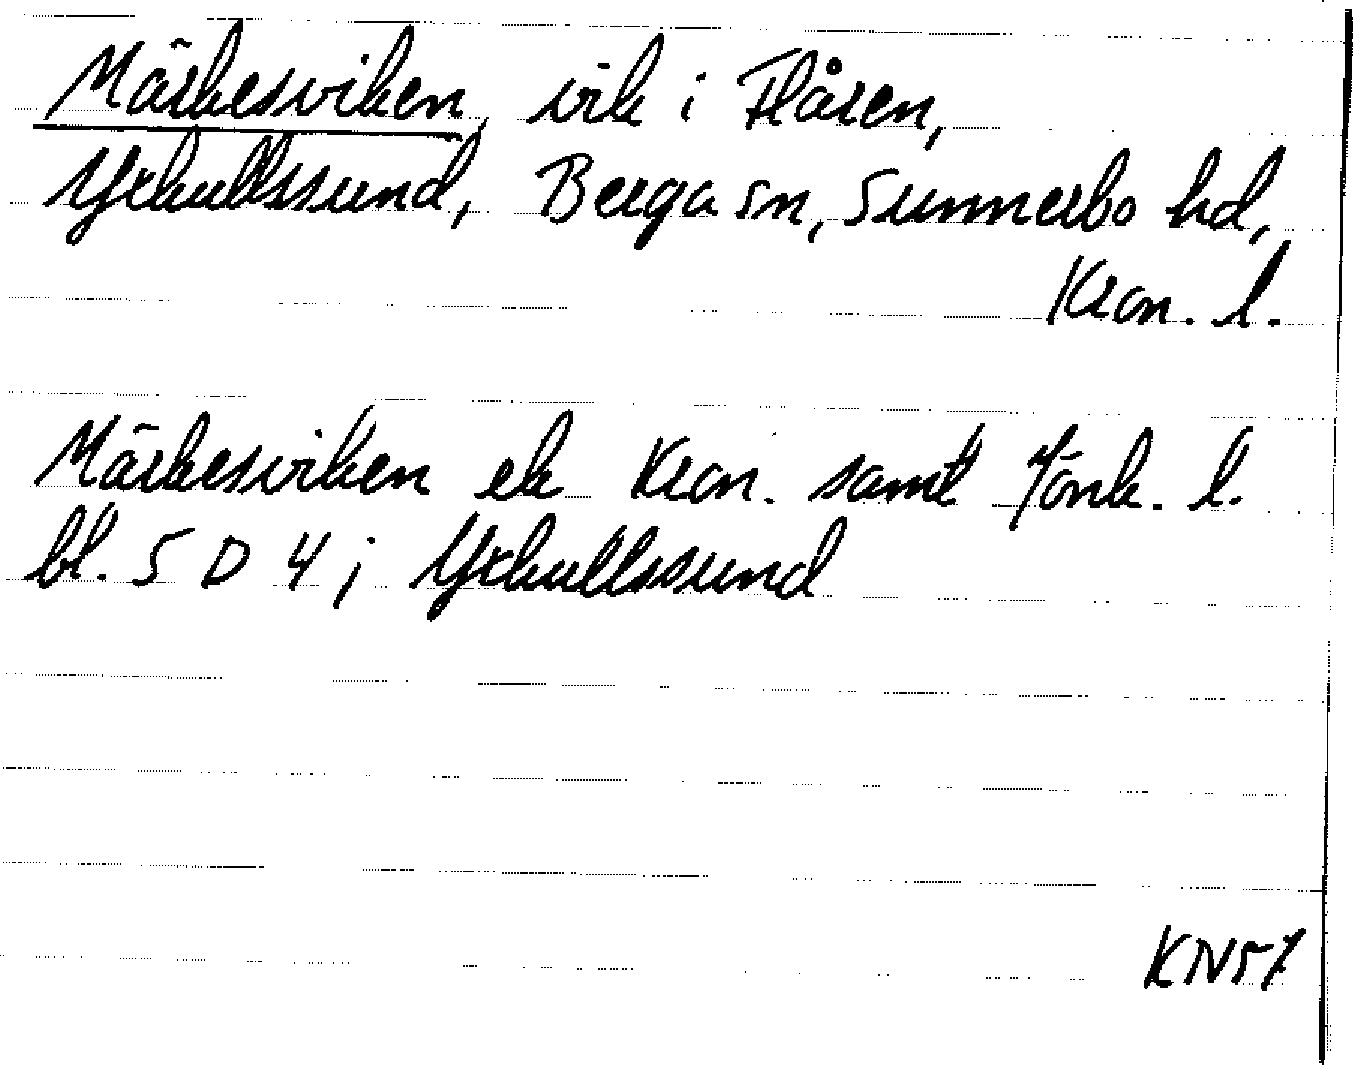 Märkesviken, vik i Flåren,
Yxkullssund, Berga sn, Sunnerbo hd,
Kron. l.
Märkesviken ek Kron. samt Jönk. l.
bl. 5 D 4; Yxkullssund
KN57